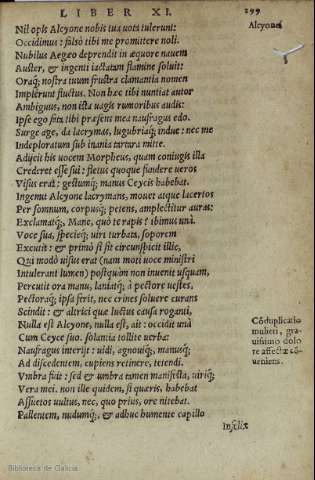 LIBER XI.
299
Nil opis Alcyone nobis tua uota tulerunt:
Alcyone
Occidimus: falsò tibi me promittere noli.
Nubilus Aegeo deprendit in æquore nauem
Auster, & ingenti iactatam flamine soluit:
Oraq; nostra tuum frustra clamantia nomen
Implerunt fluctus. Non hæc tibi nuntiat autor
Ambiguus, non ista uagis rumoribus audis:
Ipse ego fata tibi præsens mea naufragus edo.
Surge age, da lacrymas, lugubriaq; indue: nec me
Indeploratum sub inania tartara mitte.
Adijcit his uocem Morpheus, quam coniugis illa
Crederet esse sui: fletus quoque fundere ueros
Visus erat: gestumq; manus Ceycis habebat.
Ingemit Alcyone lacrymans, mouet atque lacertos
Per somnum, corpusq; petens, amplectitur auras:
Exclamatq;, Mane, quò te rapis? ibimus unà.
Voce sua, specieq; uiri turbata, soporem
Excutit: & primò si sit circunspicit illic,
Qui modò uisus erat (nam moti uoce ministri
Intulerant lumen) postquàm non inuenit usquam,
Percutit ora manu, laniatq; à pectore uestes,
Pectoraq; ipsa ferit, nec crines soluere curans
Scindit: & altrici quæ luctus causa roganti,
Nulla est Alcyone, nulla est, ait: occidit unà
Cum Ceyce suo. solantia tollite uerba:
Naufragus interijt: uidi, agnouiq;, manusq;
Ad discedentem, cupiens retinere, tetendi.
Vmbra fuit: sed & umbra tamen manifesta, uiriq;
Vera mei. non ille quidem, si quæris, habebat
Assuetos uultus, nec, quo prius, ore nitebat.
Pallentem, nudumq;, & adhuc humente capillo
Cōduplicatio
mulieri, gra-
uissimo dolo
re affectæ cō-
ueniens.
Infelix
Biblioteca de Galicia